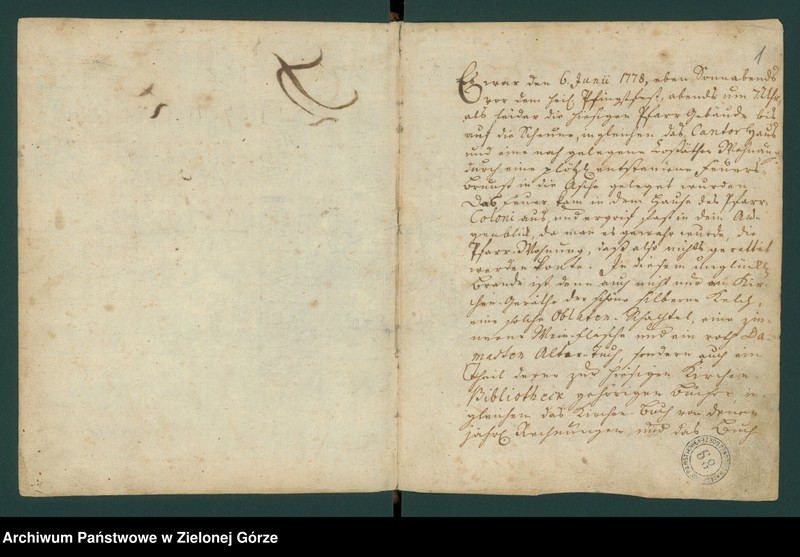 1
Es war den 6. Junii 1778, eben Sonnabends
vor dem heil. Pfingstfest, abends um Uhr,
als leider die hiesigen Pfarr Gebäude bis
auf die Scheune, ingleichen das Cantor Haus
und eine nah gelegene Cossäthen Wohnung
durch eine plötzl. entstandene Feuers-
brunst in die Asche geleget wurden.
Das Feuer kam in dem Hause des Pfarr-
Coloni aus, und ergrif fast in dem Au-
genblick, da man es gewahr wurde, die
Pfarr-Wohnung, daß also nichts gerettet
werden konte. In diesem unglückl.
Brande ist denn auch nicht nur an Kir-
chen-Geräthe der schöne silberne Kelch,
eine solche Oblaten-Schachtel, eine zin-
nerne Wein-flasche und ein roth Da-
masten Altar-Tuch, sondern auch ein
Theil derer zur hiesigen Kirchen-
Bibliotheck gehörigen Bücher, in-
gleichen das Kirchen-Buch von denen
jährl. Rechnungen, und das Buch
68
Archiwum Państwowe w Zielonej Górze